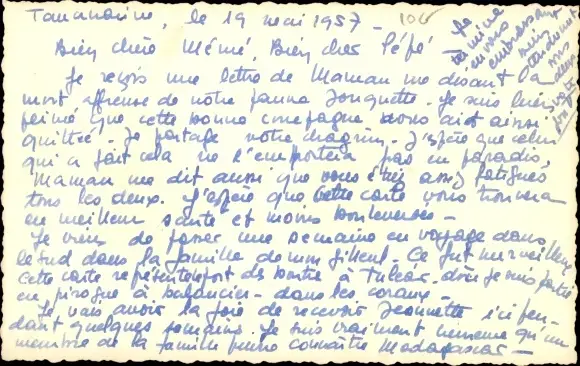 Tananarive, le 19 mai 1957 - 106
Bien chère Mémé, Bien cher Pépé -
Je reçois une lettre de Maman me disant la
mort affreuse de notre pauvre Jonquette. Je suis bien
peiné que cette bonne compagne vous ait ainsi
quittée. Je partage votre chagrin. J'espère que celui
qui a fait cela ne l'emportera pas en paradis,
Maman me dit aussi que vous étiez assez fatigués
tous les deux. J'espère que cette carte vous trouvera
en meilleur santé et moins bouleversés -
Je viens de passer une semaine en voyage dans
le sud dans la famille de mon filleul. Ce fut merveilleux
Cette carte représente port de boutre à Tuléar d'où je suis partie
en pirogue à balancier - dans les coraux -
Je vais avoir la joie de recevoir Jeannette ici pen-
dant quelques semaines. Je suis vraiment heureuse qu'un
membre de la famille vienne connaître Madagascar -
Je
termine
en vous
embrassant
bien
tendrement
tous
deux